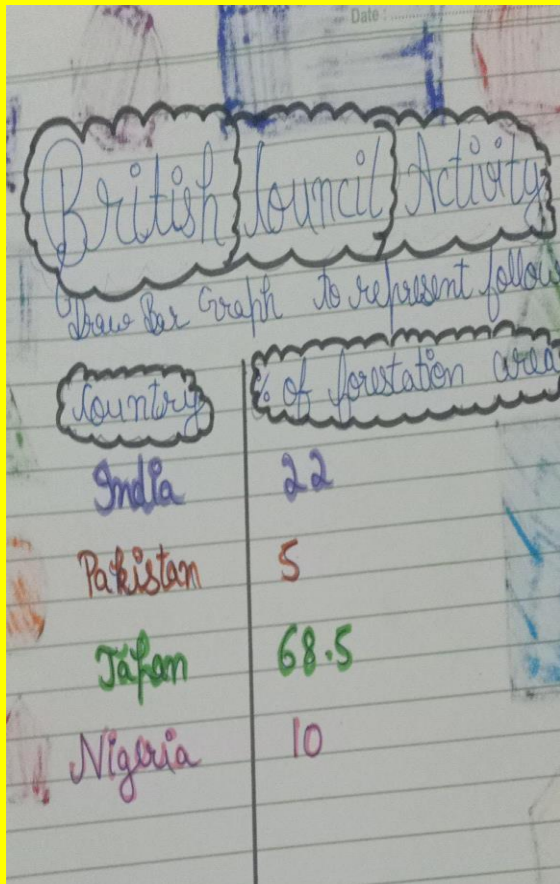 Date :
British Council Activity
Draw Bar Graph to represent follow
Country % of forestation area
India 22
Pakistan 5
Japan 68.5
Nigeria 10